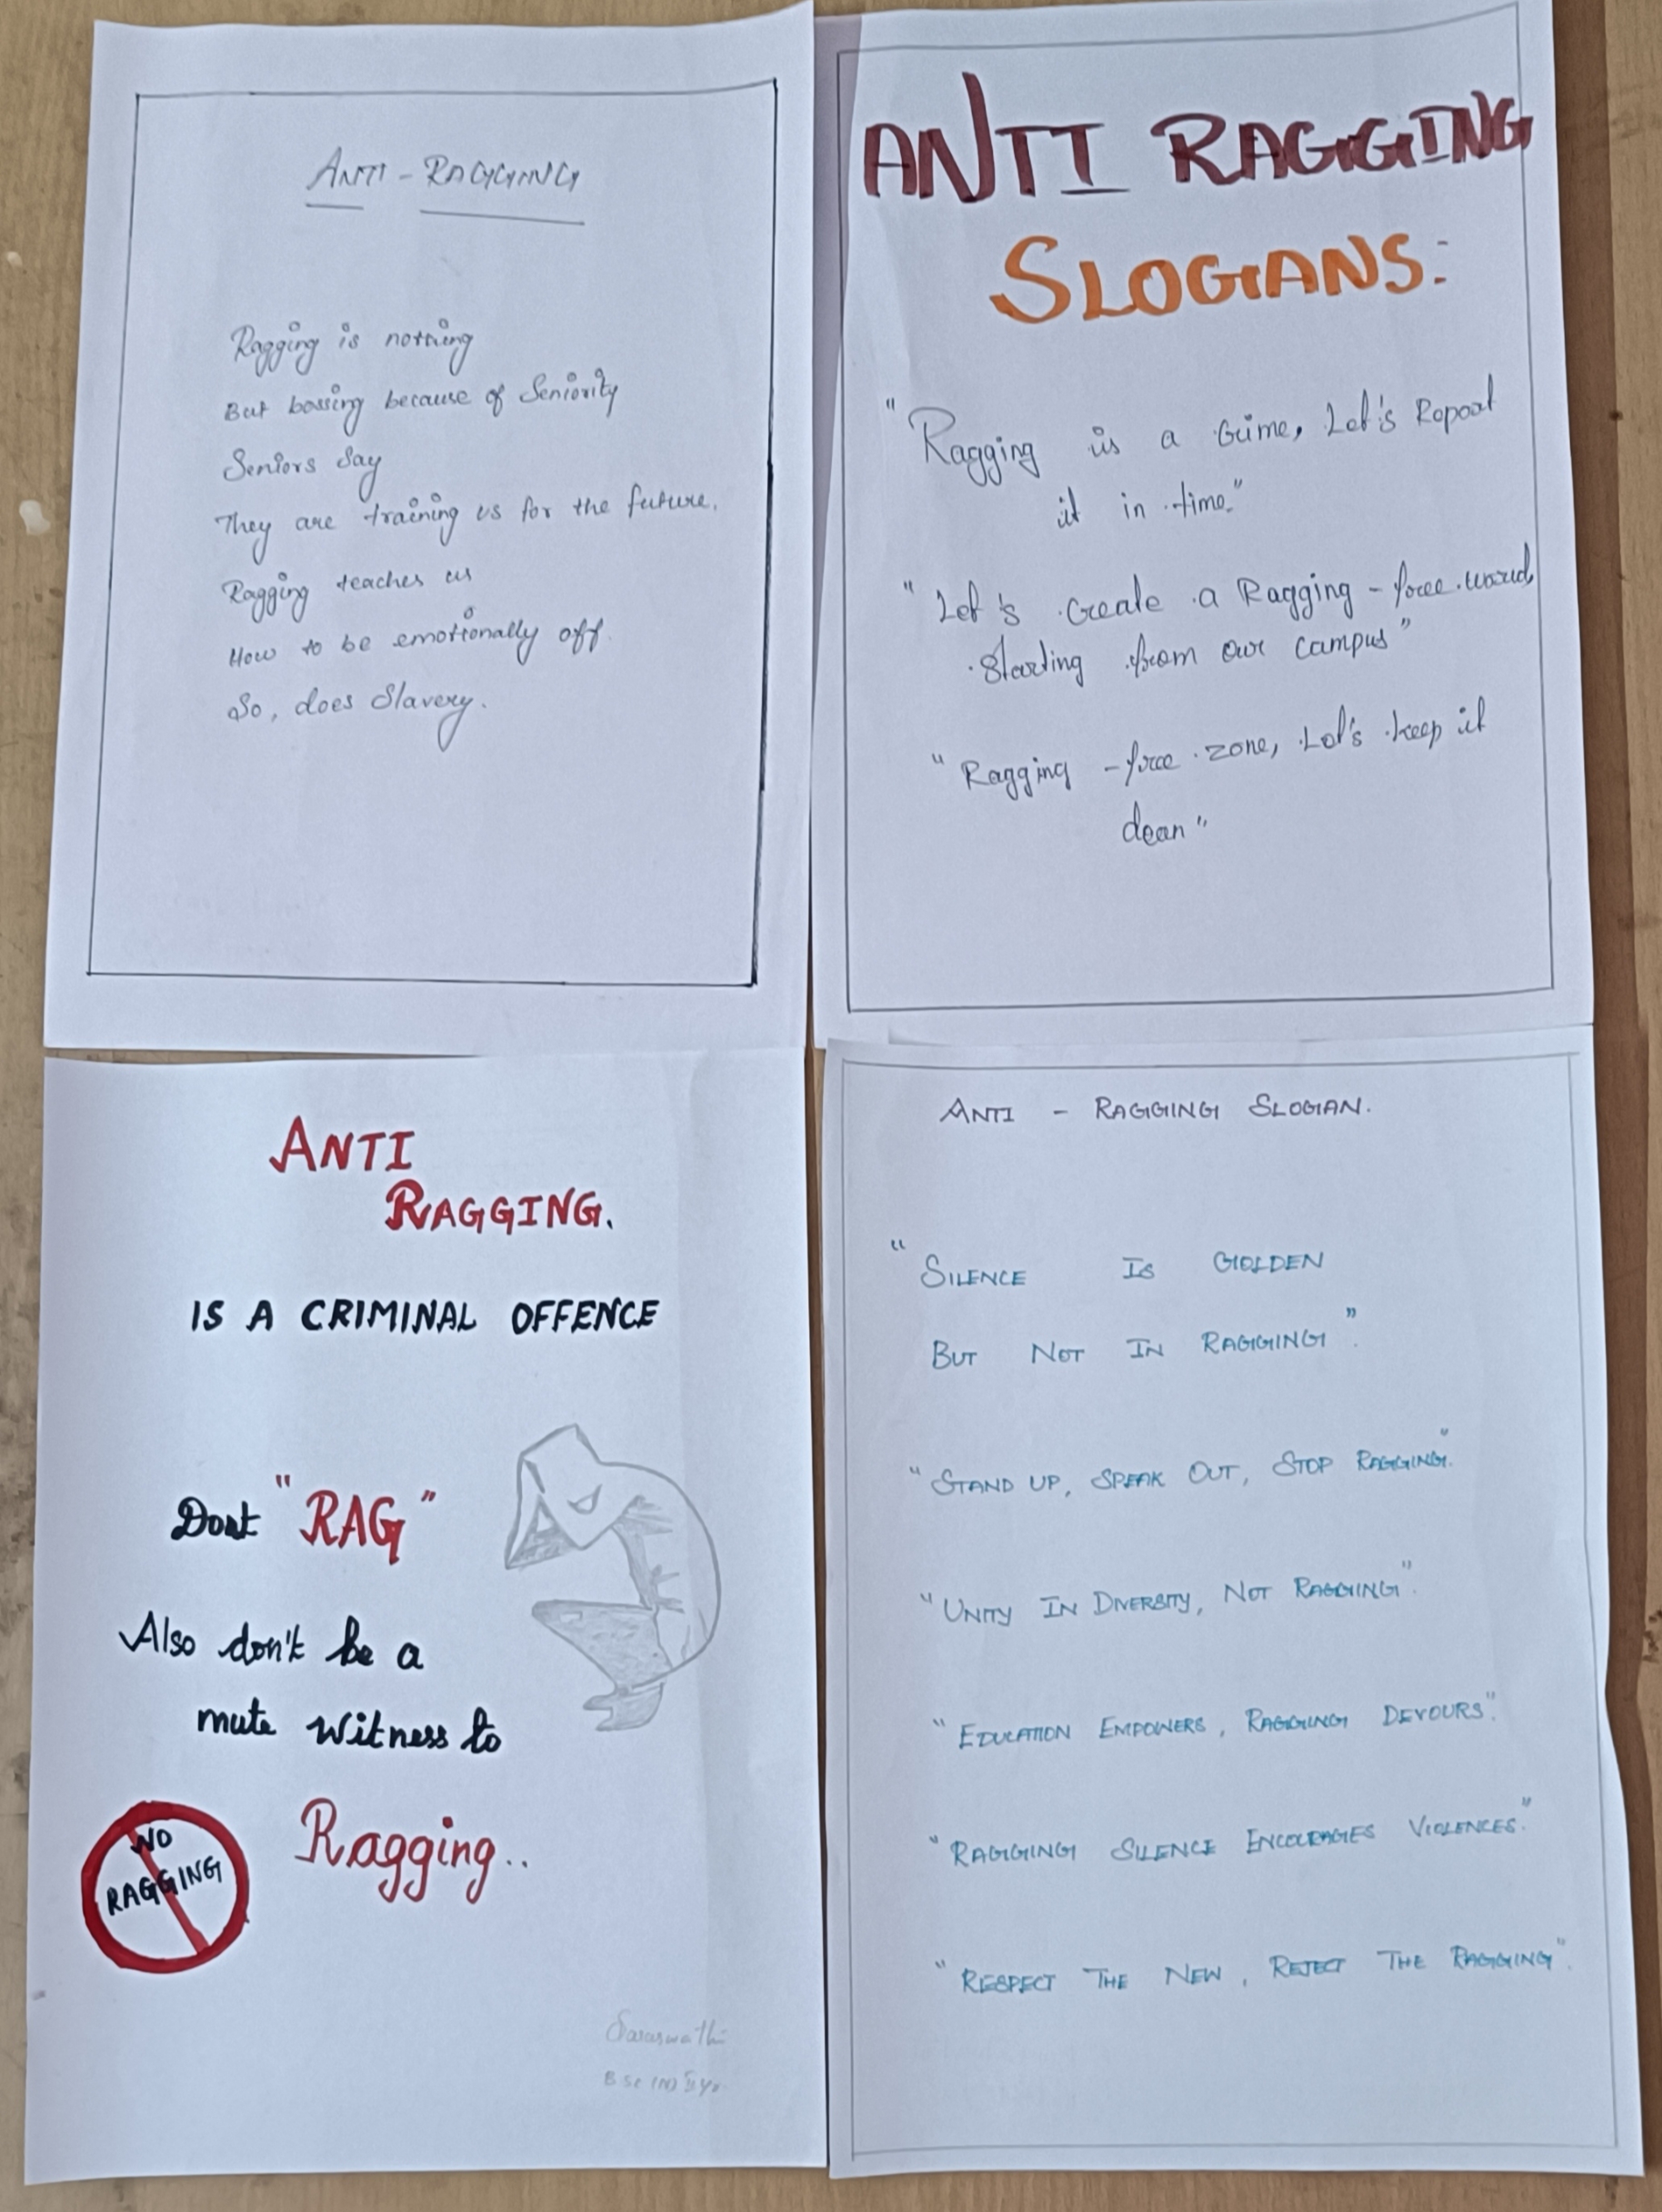 ANTI - RAGGING
Ragging is nothing
But bossing because of Seniority
Seniors Say
They are training us for the future.
Ragging teaches us
How to be emotionally off.
So, does Slavery.
ANTI RAGGING
SLOGANS:
"Ragging is a crime, Let's Report
it in time."
"Let's create a Ragging - free world,
Starting from our campus"
"Ragging - free zone, Let's keep it
clean"
ANTI
RAGGING.
IS A CRIMINAL OFFENCE
Dont "RAG"
Also don't be a
mute witness to
Ragging..
NO
RAGGING
Saraswathi
B Sc (N)
ANTI - RAGGING SLOGAN.
"SILENCE IS GOLDEN
BUT NOT IN RAGGING".
"STAND UP, SPEAK OUT, STOP RAGGING".
"UNITY IN DIVERSITY, NOT RAGGING".
"EDUCATION EMPOWERS, RAGGING DEVOURS".
"RAGGING SILENCE ENCOURAGES VIOLENCES."
"RESPECT THE NEW, REJECT THE RAGGING".